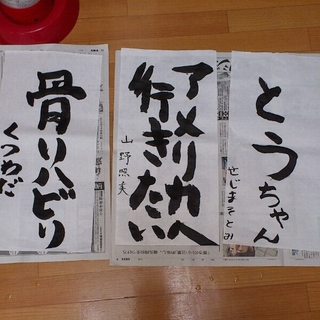 とうちゃん
せじまさとみ
アメリカへ
行きたい
山野照美
骨リハビリ
くつわだ